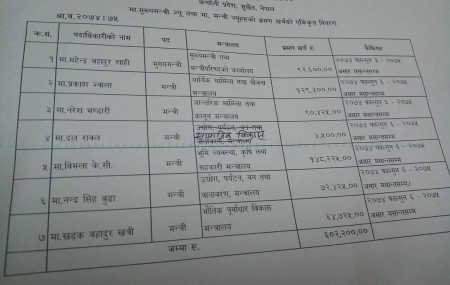 कर्णाली प्रदेश, सुर्खेत, नेपाल
मा.मुख्यमन्त्री ज्यू तथा मा. मन्त्री ज्यूहरुको भ्रमण खर्चको एकिकृत विवरण
आ.व.२०७४।७५
क्र.सं. पदाधिकारीको नाम पद मन्त्रालय भ्रमण खर्च रु. कैफियत
१ मा.महेन्द्र बहादुर शाही मुख्यमन्त्री मुख्यमन्त्री तथा मन्त्रीपरिषदको कार्यालय ९२,६००.०० २०७४ फाल्गुन ३ - २०७५ असार मसान्तसम्म
२ मा.प्रकाश ज्वाला मन्त्री आर्थिक मामिला तथा योजना मन्त्रालय १२९,३००.०० २०७४ फाल्गुन ६ - २०७५ असार मसान्तसम्म
३ मा.नरेश भण्डारी मन्त्री आन्तरिक मामिला तथा कानुन मन्त्रालय ९०,४२५.०० २०७४ फाल्गुन ६ - २०७५ असार मसान्तसम्म
४ मा.दल रावल मन्त्री उद्योग, पर्यटन, वन तथा सामाजिक विकास मन्त्रालय ५,९००.०० २०७४ फाल्गुन ६ - २०७५ असार मसान्तसम्म
५ मा.विमला के.सी. मन्त्री भूमि व्यवस्था, कृषि तथा सहकारी मन्त्रालय १४८,२२५.०० २०७४ फाल्गुन ६ - २०७५ असार मसान्तसम्म
६ मा.नन्द सिंह बुढा मन्त्री उद्योग, पर्यटन, वन तथा वातावरण, मन्त्रालय ७२,४२५.०० २०७४ फाल्गुन ६ - २०७५ असार मसान्तसम्म
७ मा.खडक बहादुर खत्री मन्त्री भौतिक पूर्वाधार विकास मन्त्रालय ६४,७२५.०० २०७४ फाल्गुन ६ - २०७५ असार मसान्तसम्म
जम्मा रु. ६०२,२००.००